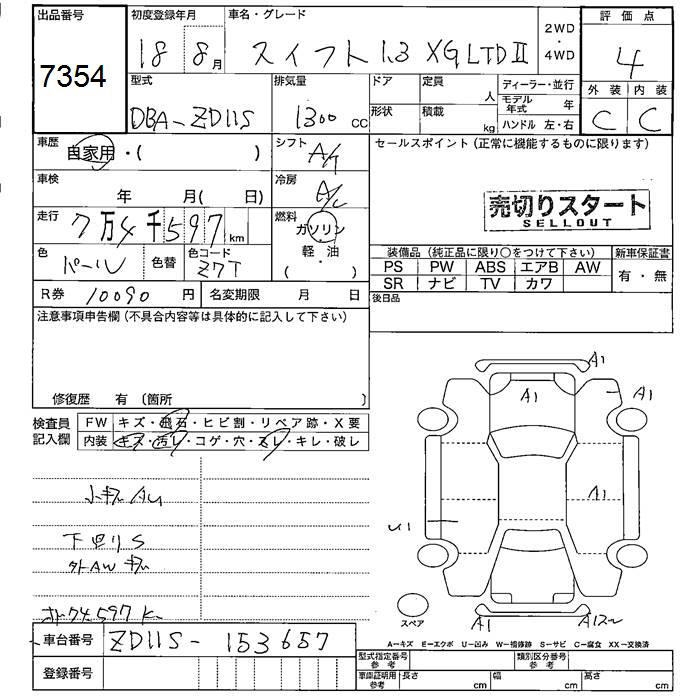 出品番号
7354
初度登録年月
18 8月
車名・グレード
スイフト 1.3 XG LTD II
2WD
・
4WD
評価点
4
外装 内装
C C
型式
DBA-ZD11S
排気量
1300 cc
ドア
定員
人
形状
積載
kg
ディーラー・並行
モデル年式 年
ハンドル 左・右
車歴
自家用・( )
シフト
A/T
車検
年 月( 日)
冷房
A/C
走行
7万4千597km
燃料
ガソリン
軽・油
( )
色
パール
色替
色コード
Z7T
R券 10090 円
名変期限 月 日
セールスポイント (正常に機能するものに限ります)
売切りスタート
SELLOUT
装備品 (純正品に限り○をつけて下さい)
新車保証書
PS PW ABS エアB AW
SR ナビ TV カワ
有・無
後日品
注意事項申告欄 (不具合内容等は具体的に記入して下さい)
修復歴 有 〔箇所 〕
検査員
記入欄
FW キズ・飛石・ヒビ割・リペア跡・X要
内装 キズ・汚レ・コゲ・穴・スレ・キレ・破レ
小キズ AU
下廻り S
外AW キズ
74597 K
A1
A1
A1
A1
U1
A1
A1
スペア
A-キズ E-エクボ U-凹み W-補修跡 S-サビ C-腐食 XX-交換済
車台番号
ZD11S-153657
登録番号
型式指定番号
参考
類別区分番号
参考
車庫証明用
参考
長さ cm 幅 cm 高さ cm